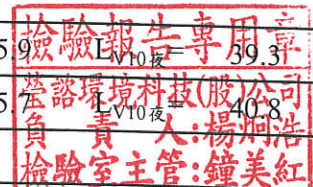 檢驗報告專用章
5.9 LV10夜= 39.3
瑩諮環境科技(股)公司
5.7 LV10夜= 40.8
負責人:楊炯浩
檢驗室主管:鐘美紅